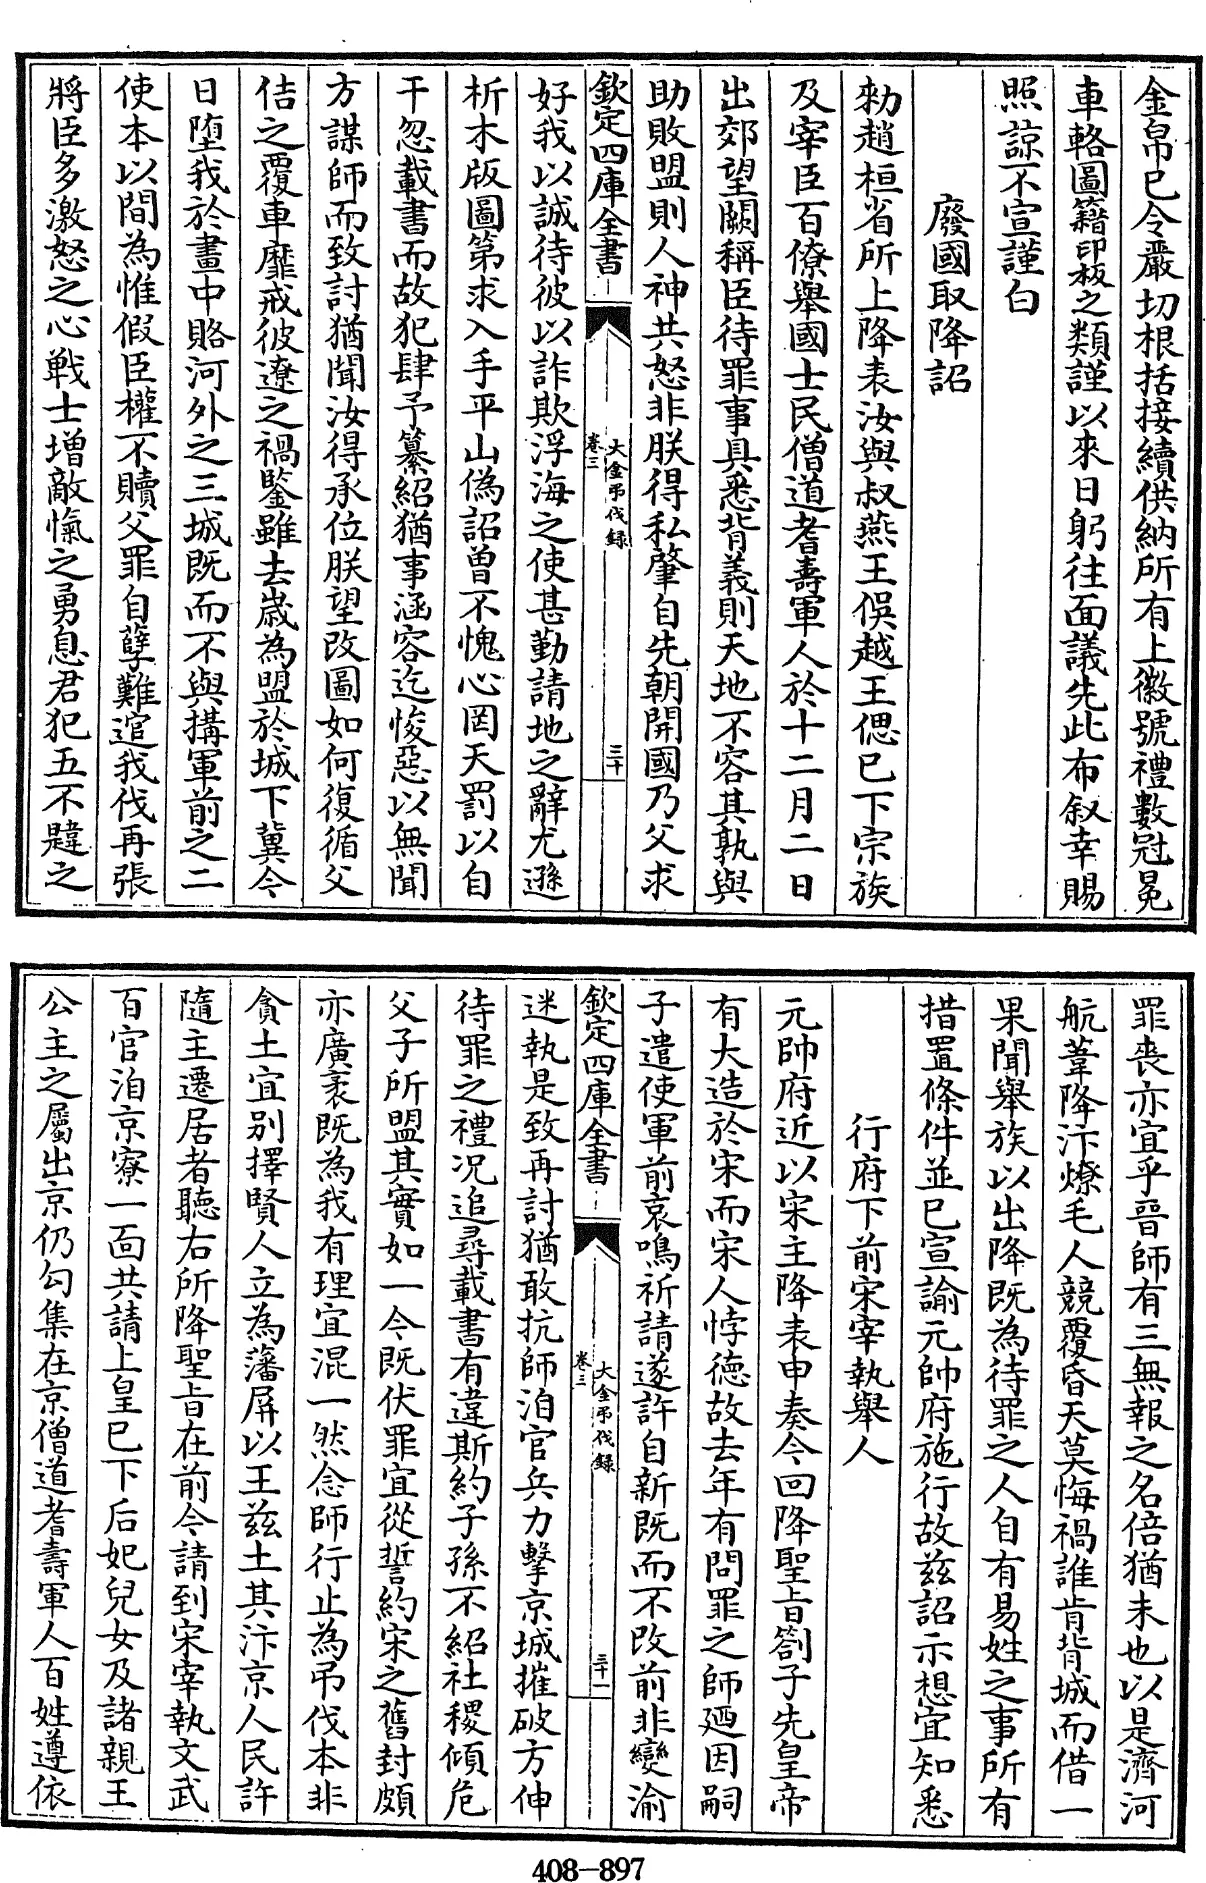 金帛已令嚴切根括接續供納所有上徽號禮數冠冕
車輅圖籍印板之類謹以來日躬往面議先此布叙幸賜
照諒不宣謹白
廢國取降詔
勑趙桓省所上降表汝與叔燕王俁越王偲已下宗族
及宰臣百僚舉國士民僧道耆壽軍人於十二月二日
出郊望闕稱臣待罪事具悉背義則天地不容其孰與
助敗盟則人神共怒非朕得私肇自先朝開國乃父求
欽定四庫全書
卷三
大金弔伐録
三十
好我以誠待彼以詐欺浮海之使甚勤請地之辭尤遜
析木版圖第求入手平山偽詔曽不愧心罔天罰以自
干忽載書而故犯肆予纂紹猶事涵容迄悛惡以無聞
方謀師而致討猶聞汝得承位朕望改圖如何復循父
佶之覆車靡戒彼遼之禍鑒雖去歳為盟於城下冀今
日墮我於畫中賂河外之三城既而不與搆軍前之二
使本以間為惟假臣權不贖父罪自孽難逭我伐再張
將臣多激怒之心戰士增敵愾之勇息君犯五不韙之
罪喪亦宜乎晉師有三無報之名倍猶未也以是濟河
航葦降汴燎毛人競覆昏天莫悔禍誰肯背城而借一
果聞舉族以出降既為待罪之人自有易姓之事所有
措置條件並已宣諭元帥府施行故兹詔示想宜知悉
行府下前宋宰執舉人
元帥府近以宋主降表申奏今回降聖旨劄子先皇帝
有大造於宋而宋人悖德故去年有問罪之師廼因嗣
子遣使軍前哀鳴祈請遂許自新既而不改前非變渝
欽定四庫全書
卷三
大金弔伐録
三十一
迷執是致再討猶敢抗師洎官兵力擊京城摧破方伸
待罪之禮况追尋載書有違斯約子孫不紹社稷傾危
父子所盟其實如一今既伏罪宜從誓約宋之舊封頗
亦廣袤既為我有理宜混一然念師行止為弔伐本非
貪土宜别擇賢人立為藩屏以王兹土其汴京人民許
隨主遷居者聽右所降聖旨在前今請到宋宰執文武
百官洎京寮一面共請上皇已下后妃兒女及諸親王
公主之屬出京仍勾集在京僧道耆壽軍人百姓遵依
408-897